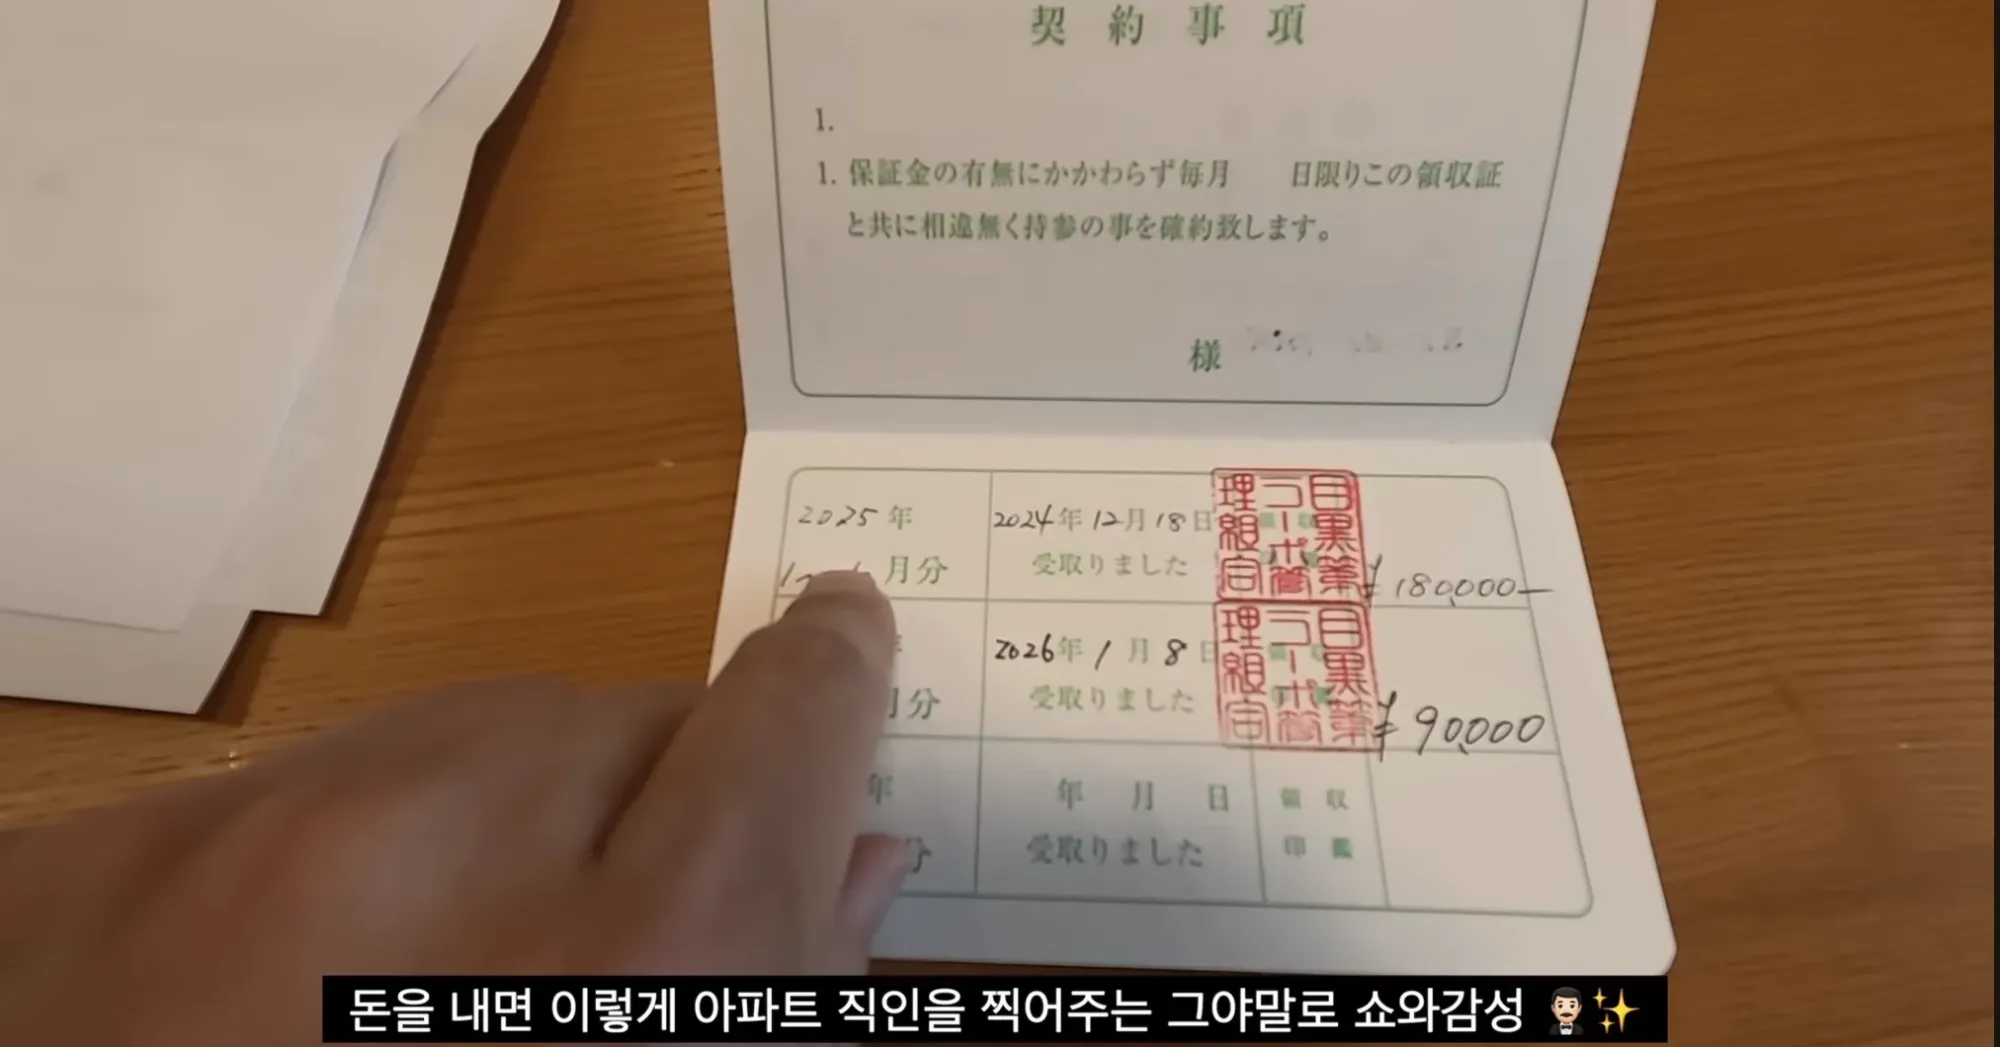 契約事項
1.
1. 保証金の有無にかかわらず毎月 日限りこの領収証
と共に相違無く持参の事を確約致します。
様
2025年 2024年12月18日
月分 受取りました ¥180,000—
2026年1月8日
月分 受取りました ¥90,000
目黒第
コーポ管
理組合
目黒第
コーポ管
理組合
年 年 月 日 領収
分 受取りました 印鑑
돈을 내면 이렇게 아파트 직인을 찍어주는 그야말로 쇼와감성